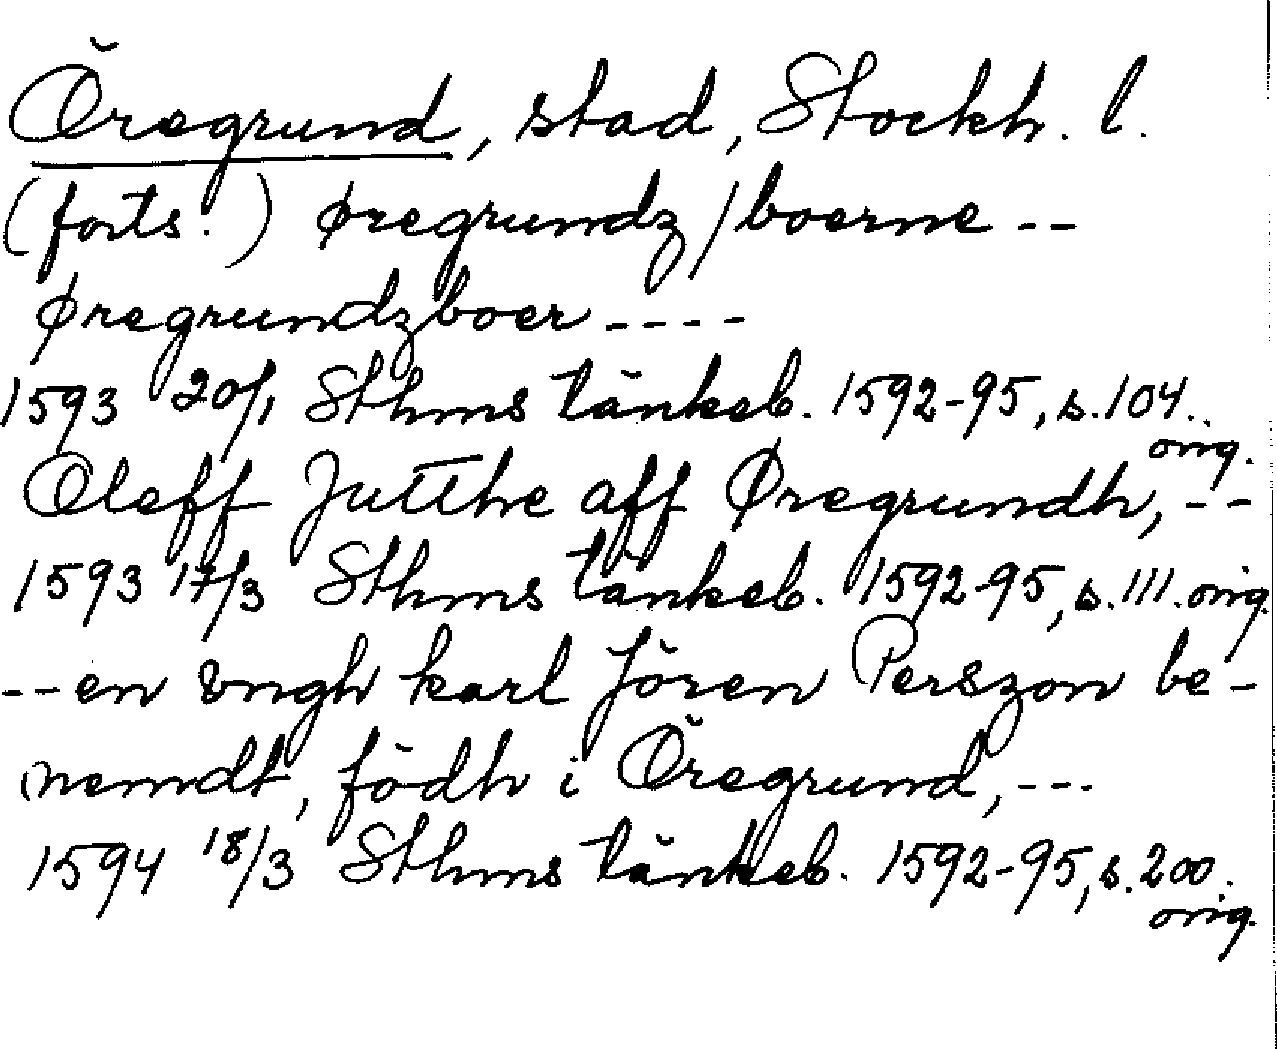 Öregrund, stad, Stockh. l.
(forts.) øregrundz/boerne --
øregrundzboer ----
1593 20/1 Sthms tänkeb. 1592-95, s. 104. orig.
Oleff Jutthe aff Øregrundh, --
1593 17/3 Sthms tänkeb. 1592-95, s. 111. orig.
-- en vngh karl Jören Perszon be-
nemdt, födh i Öregrund, ---
1594 18/3 Sthms tänkeb. 1592-95, s. 200. orig.